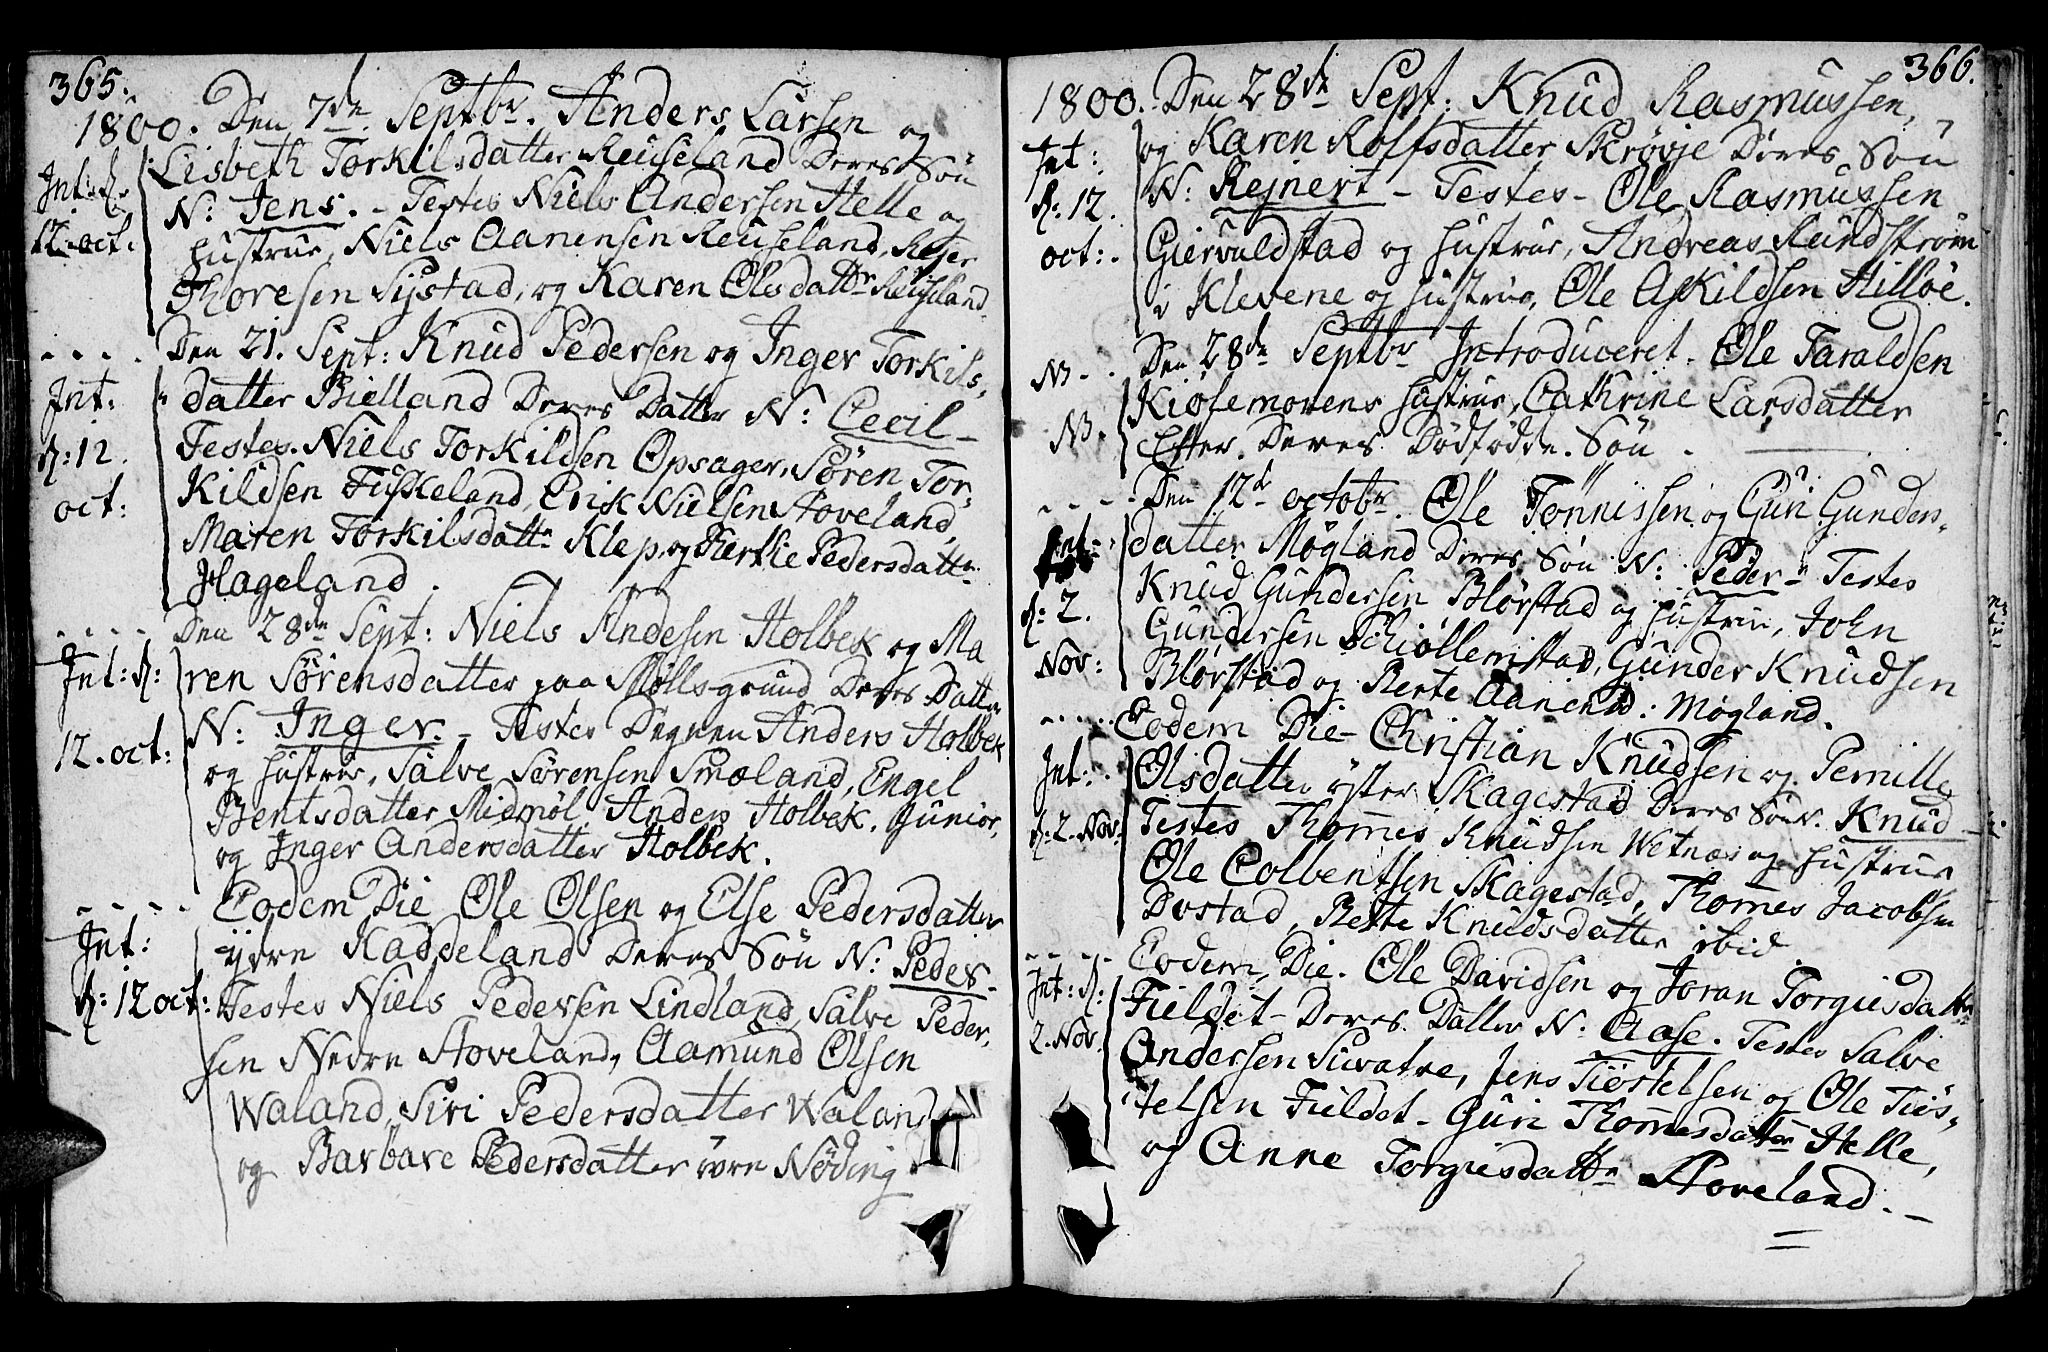 365.
1800. Den 7de Septbr. Anders Larsen og
Lisbeth Torkilsdatter Reuseland Deres Søn
N: Jens. - Testes Niels Andersen Helle og
hustrue, Niels Aanensen Reuseland, Rejer
Thoresen Sijstad, og Karen Olsdattr Reuseland.
Int: d:
12. oct.
Den 21. Sept: Knud Pedersen og Inger Torkils-
datter Bielland Deres Datter N: Cecil-
Testes. Niels Torkildsen Opsager, Sören Tor-
kildsen Fuskeland, Erik Nielsen Stoveland,
Maren Torkilsdattr Klep, og Pedersdattr
Hageland.
Int:
d: 12.
oct:
Den 28de Sept: Niels Andesen Holbek og Ma
ren Sörensdatter paa Mölls-grund Deres Datter
N: Inger. - Testes Degnen Anders Holbek
og hustrue, Salve Sörensen Smæland, Engel
Bentsdatter Midmöl, Anders Holbek. Junior,
og Inger Andersdatter Holbek.
Int: d:
12. oct:
Eodem Die Ole Olsen og Else Pedersdatter
ydre Kaddeland Deres Søn N: Peder-
Testes Niels Pedersen Lindland, Salve Peder-
sen Nedre Stoveland, Aamund Olsen
Waland, Siri Pedersdatter Waland
og Barbare Pedersdatter övre Nöding
Int:
d: 12 oct:
366.
1800. Den 28de Sept: Knud Rasmussen,
og Karen Rolfsdatter Skrövje Deres Søn
N: Rejnert - Testes - Ole Rasmussen
Giervuldstad og hustrue, Andreas Rundström
i Klevene og hustrue, Ole Askildsen Hillöe.
Int:
d: 12.
oct:
Den 28de Septbr Introduceret. Ole Taraldsen
Kiölemoens hustrue, Cathrine Larsdatter
Efter. Deres Dödfödde. Søn.
NB.
NB.
Den 12te octobr. Ole Tönnissen og Guri Gunders-
datter Møgland Deres Søn N: Peder - Testes
Knud Gundersen Blörstad og hustrue, John
Gundersen Schiöllemstad, Gunder Knudsen
Blörstad og Berte Aanensd: Møgland.
Int:
d: 2.
Nov:
Eodem Die Christian Knudsen og Pernille
Olsdatter öster Skagestad Deres Sön. Knud-
Testes Thomes Knudsen Wetnæs og hustrue
Ole Colbentsen Skagestad, Thomes Jacobsen
Dustad, Berte Knudsdatter ibid.
Int:
d: 2. Nov.
Eodem Die. Ole Davidsen og Joran Torgiusdatter
Fieldet - Deres Datter N: Aase. Testes Salve
Andersen Suvatne, Jens Tiöstelsen og Ole Tiös-
telsen Fieldet - Guri Thomesdattr Helle,
og Anne Torgiusdattr Stoveland. -
Int: d:
2. Nov.